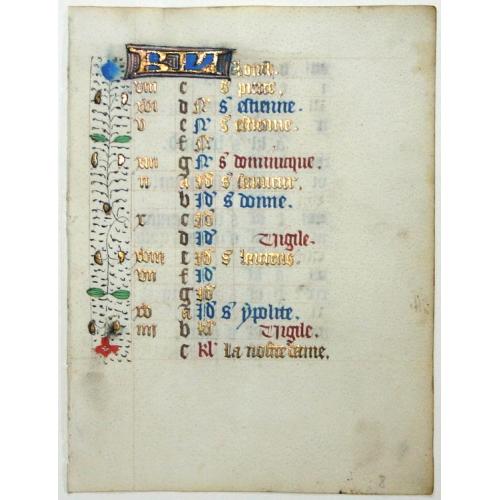 KL Aoust.
viii c s pierre.
xvi d N s estienne.
v e N s estienne.
f N
xiii g N s dominicque.
ii a Id s
b Id s donne.
x c Id
d Id Vigile.
xviii e Id s laurens.
vii f Id
g Id
xv a Id s ypolite.
iiii b kl Vigile.
c kl La nostre dame.
8